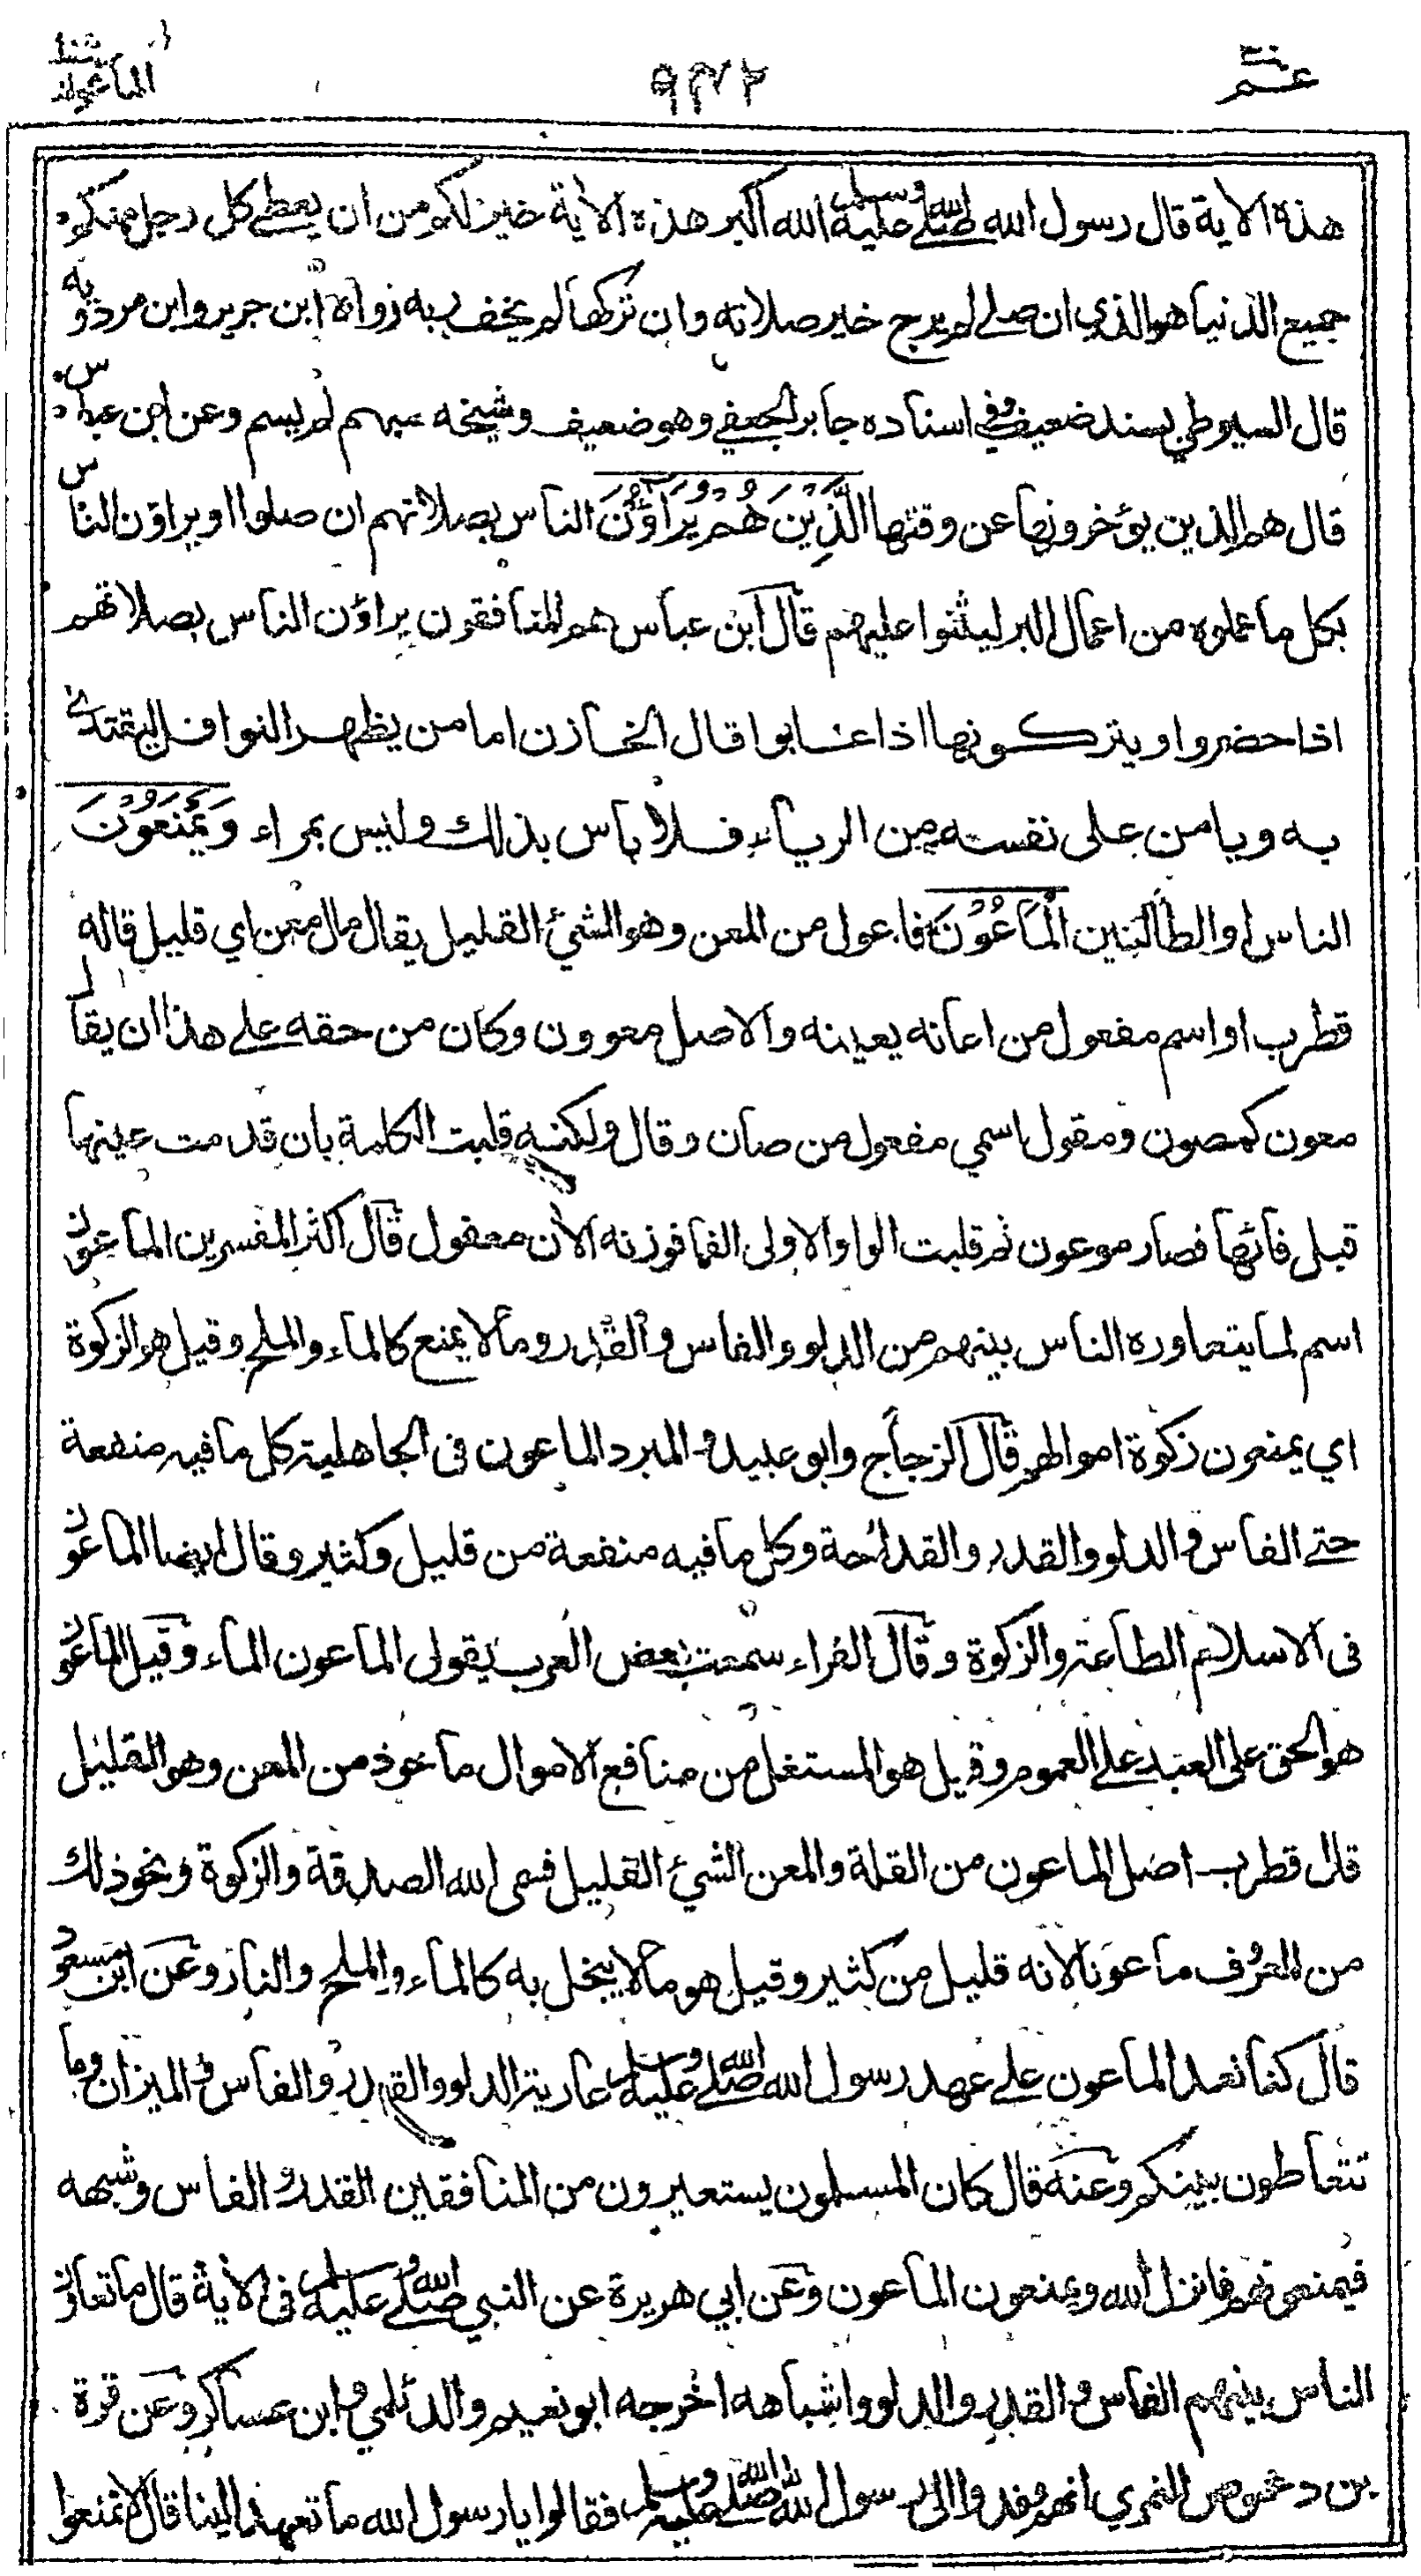 عم
٩٣٢
الماعون
هذه الاية قال رسول الله صلى الله عليه وسلم الله اكبر هذه الاية خير لكم من ان يعطى كل رجل منكم
جميع الدنيا هو الذي ان صلے لم يرج خير صلاته وان تركها لم يخف ربه رواه ابن جرير وابن مردويه
قال السيوطي بسند ضعيف وفي اسناده جابر الجعفي وهو ضعيف وشيخه مبهم لم يسم وعن ابن عباس
قال هم الذين يؤخرونها عن وقتها الَّذِينَ هُمْ يُرَاؤُنَ الناس بصلاتهم ان صلوا او يراؤن الناس
بكل ما عملوه من اعمال البر ليثنوا عليهم قال ابن عباس هم المنافقون يراؤن الناس بصلاتهم
اذا حضروا ويتركونها اذا غابوا قال الخازن اما من يظهر النوافل ليقتدى
به ويامن على نفسه من الرياء فلا باس بذلك وليس بمراء وَيَمْنَعُوْنَ
الناس او الطالبين الْمَاعُوْنَ فاعول من المعن وهو الشئ القليل يقال مال معن اي قليل قاله
قطرب او اسم مفعول من اعانه يعينه والاصل معوون وكان من حقه علے هذا ان يقال
معون كمصون ومقول اسمي مفعول من صان وقال ولكنه قلبت الكلمة بان قدمت عينها
قبل فائها فصار موعون ثم قلبت الواو الاولى الفا فوزنه الان معفول قال اكثر المفسرين الماعون
اسم لما يتعاوره الناس بينهم من الدلو والفاس والقدر وما لا يمنع كالماء والملح وقيل هو الزكوة
اي يمنعون زكوة اموالهم قال الزجاج وابو عبيد والمبرد الماعون فى الجاهلية كل ما فيه منفعة
حتے الفاس والدلو والقدر والقداحة وكل ما فيه منفعة من قليل وكثير وقال ايضا الماعون
فى الاسلام الطاعة والزكوة وقال الفراء سمعت بعض العرب يقول الماعون الماء وقيل الماعون
هو الحق على العبد علے العموم وقيل هو المستغل من منافع الاموال ماخوذ من المعن وهو القليل
قال قطرب اصل الماعون من القلة والمعن الشئ القليل فسمى الله الصدقة والزكوة ونحو ذلك
من المعروف ماعونا لانه قليل من كثير وقيل هو ما لا يبخل به كالماء والملح والنار وعن ابن مسعود
قال كنا نعد الماعون علے عهد رسول الله صلے الله عليه وسلم عارية الدلو والقدر والفاس والميزان وما
تتعاطون بينكم وعنه قال كان المسلمون يستعيرون من المنافقين القدر والفاس وشبهه
فيمنعونهم فانزل الله ويمنعون الماعون وعن ابي هريرة عن النبي صلے الله عليه وسلم فى الاية قال ما تعاون
الناس بينهم الفاس والقدر والدلو واشباهه اخرجه ابو نعيم والديلمي وابن عساكر وعن قرة
بن دعموص النمري انهم وفدوا الى رسول الله صلے الله عليه وسلم فقالوا يا رسول الله ما تعهد الينا قال لا تمنعوا